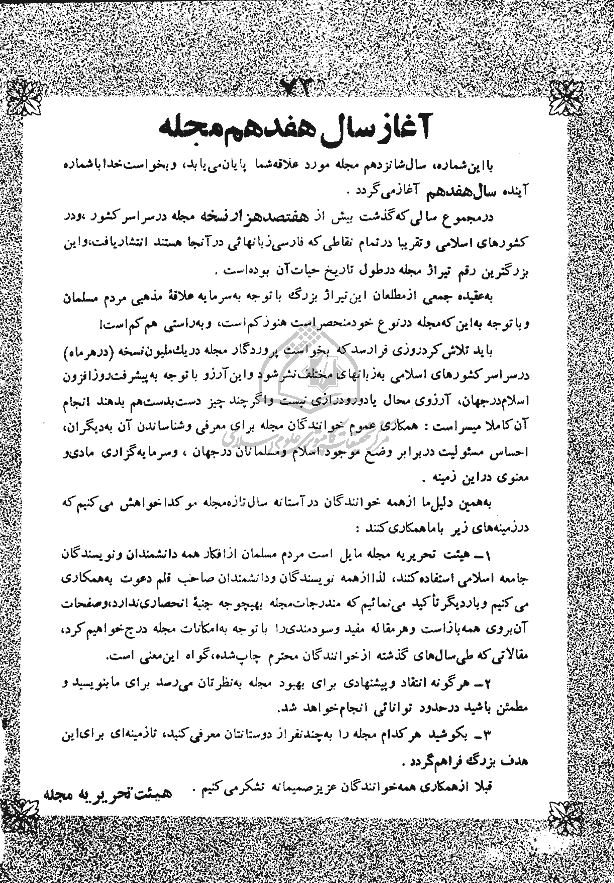 ۷۲
آغاز سال هفدهم مجله
با این شماره، سال شانزدهم مجله مورد علاقه شما پایان می‌یابد، و بخواست خدا با شماره
آینده سال هفدهم آغاز می‌گردد .
در مجموع سالی که گذشت بیش از هفتصد هزار نسخه مجله در سراسر کشور ، و در
کشورهای اسلامی و تقریبا در تمام نقاطی که فارسی زبانهائی در آنجا هستند انتشار یافت، و این
بزرگترین رقم تیراژ مجله در طول تاریخ حیات آن بوده است .
به عقیده جمعی از مطلعان این تیراژ بزرگ با توجه به سرمایه علاقهٔ مذهبی مردم مسلمان
و با توجه به این که مجله در نوع خود منحصر است هنوز کم است، و به راستی هم کم است!
باید تلاش کرد روزی فرا رسد که بخواست پروردگار مجله در یک ملیون نسخه (در هر ماه)
در سراسر کشورهای اسلامی به زبانهای مختلف نشر شود و این آرزو با توجه به پیشرفت روز افزون
اسلام در جهان، آرزوی محال یا دور و درازی نیست و اگر چند چیز دست بدست هم بدهند انجام
آن کاملا میسر است : همکاری عموم خوانندگان مجله برای معرفی و شناساندن آن به دیگران،
احساس مسئولیت در برابر وضع موجود اسلام و مسلمانان در جهان ، و سرمایه گزاری مادی و
معنوی در این زمینه .
به همین دلیل ما از همه خوانندگان در آستانه سال تازه مجله موکدا خواهش می‌کنیم که
در زمینه‌های زیر با ما همکاری کنند :
۱ـ هیئت تحریریه مجله مایل است مردم مسلمان از افکار همه دانشمندان و نویسندگان
جامعه اسلامی استفاده کنند، لذا از همه نویسندگان و دانشمندان صاحب قلم دعوت به همکاری
می‌کنیم و بار دیگر تأکید می‌نمائیم که مندرجات مجله بهیچوجه جنبهٔ انحصاری ندارد، و صفحات
آن بروی همه باز است و هر مقاله مفید و سودمندی را با توجه به امکانات مجله درج خواهیم کرد،
مقالاتی که طی سال‌های گذشته از خوانندگان محترم چاپ شده، گواه این معنی است.
۲ـ هر گونه انتقاد و پیشنهادی برای بهبود مجله به نظرتان می‌رسد برای ما بنویسید و
مطمئن باشید در حدود توانائی انجام خواهد شد.
۳ـ بکوشید هر کدام مجله را به چند نفر از دوستانتان معرفی کنید، تا زمینه‌ای برای این
هدف بزرگ فراهم گردد .
قبلا از همکاری همه خوانندگان عزیز صمیمانه تشکر می‌کنیم .
هیئت تحریریه مجله